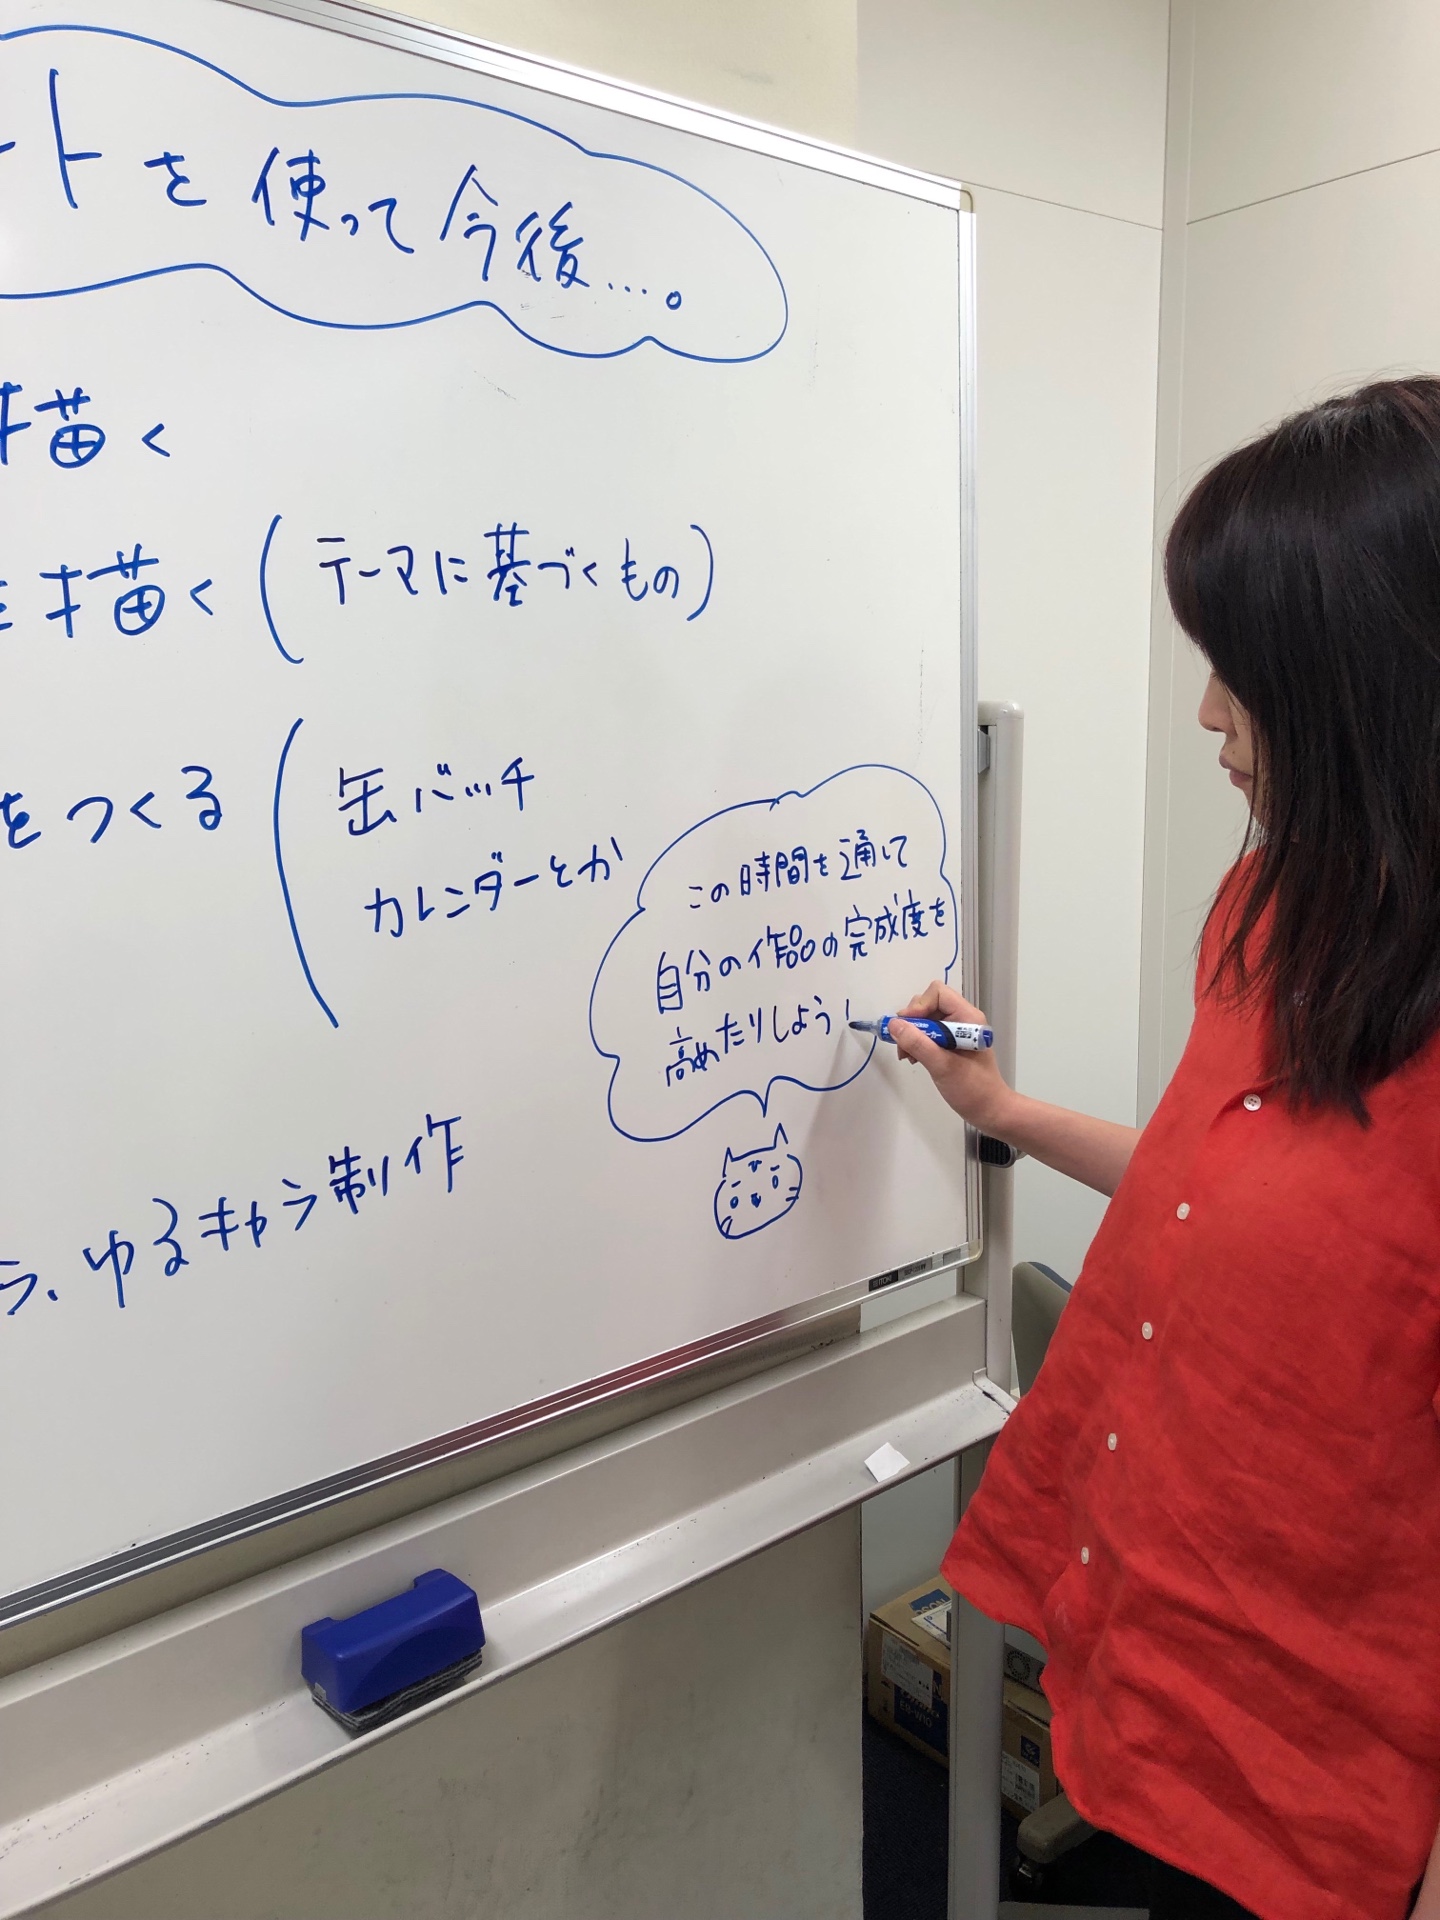 ートを使って今後....。
描く
を描く(テーマに基づくもの)
をつくる(缶バッチ
カレンダーとか
この時間を通して
自分の作品の完成度を
高めたりしよう!
ら、ゆるキャラ制作
ITOKI